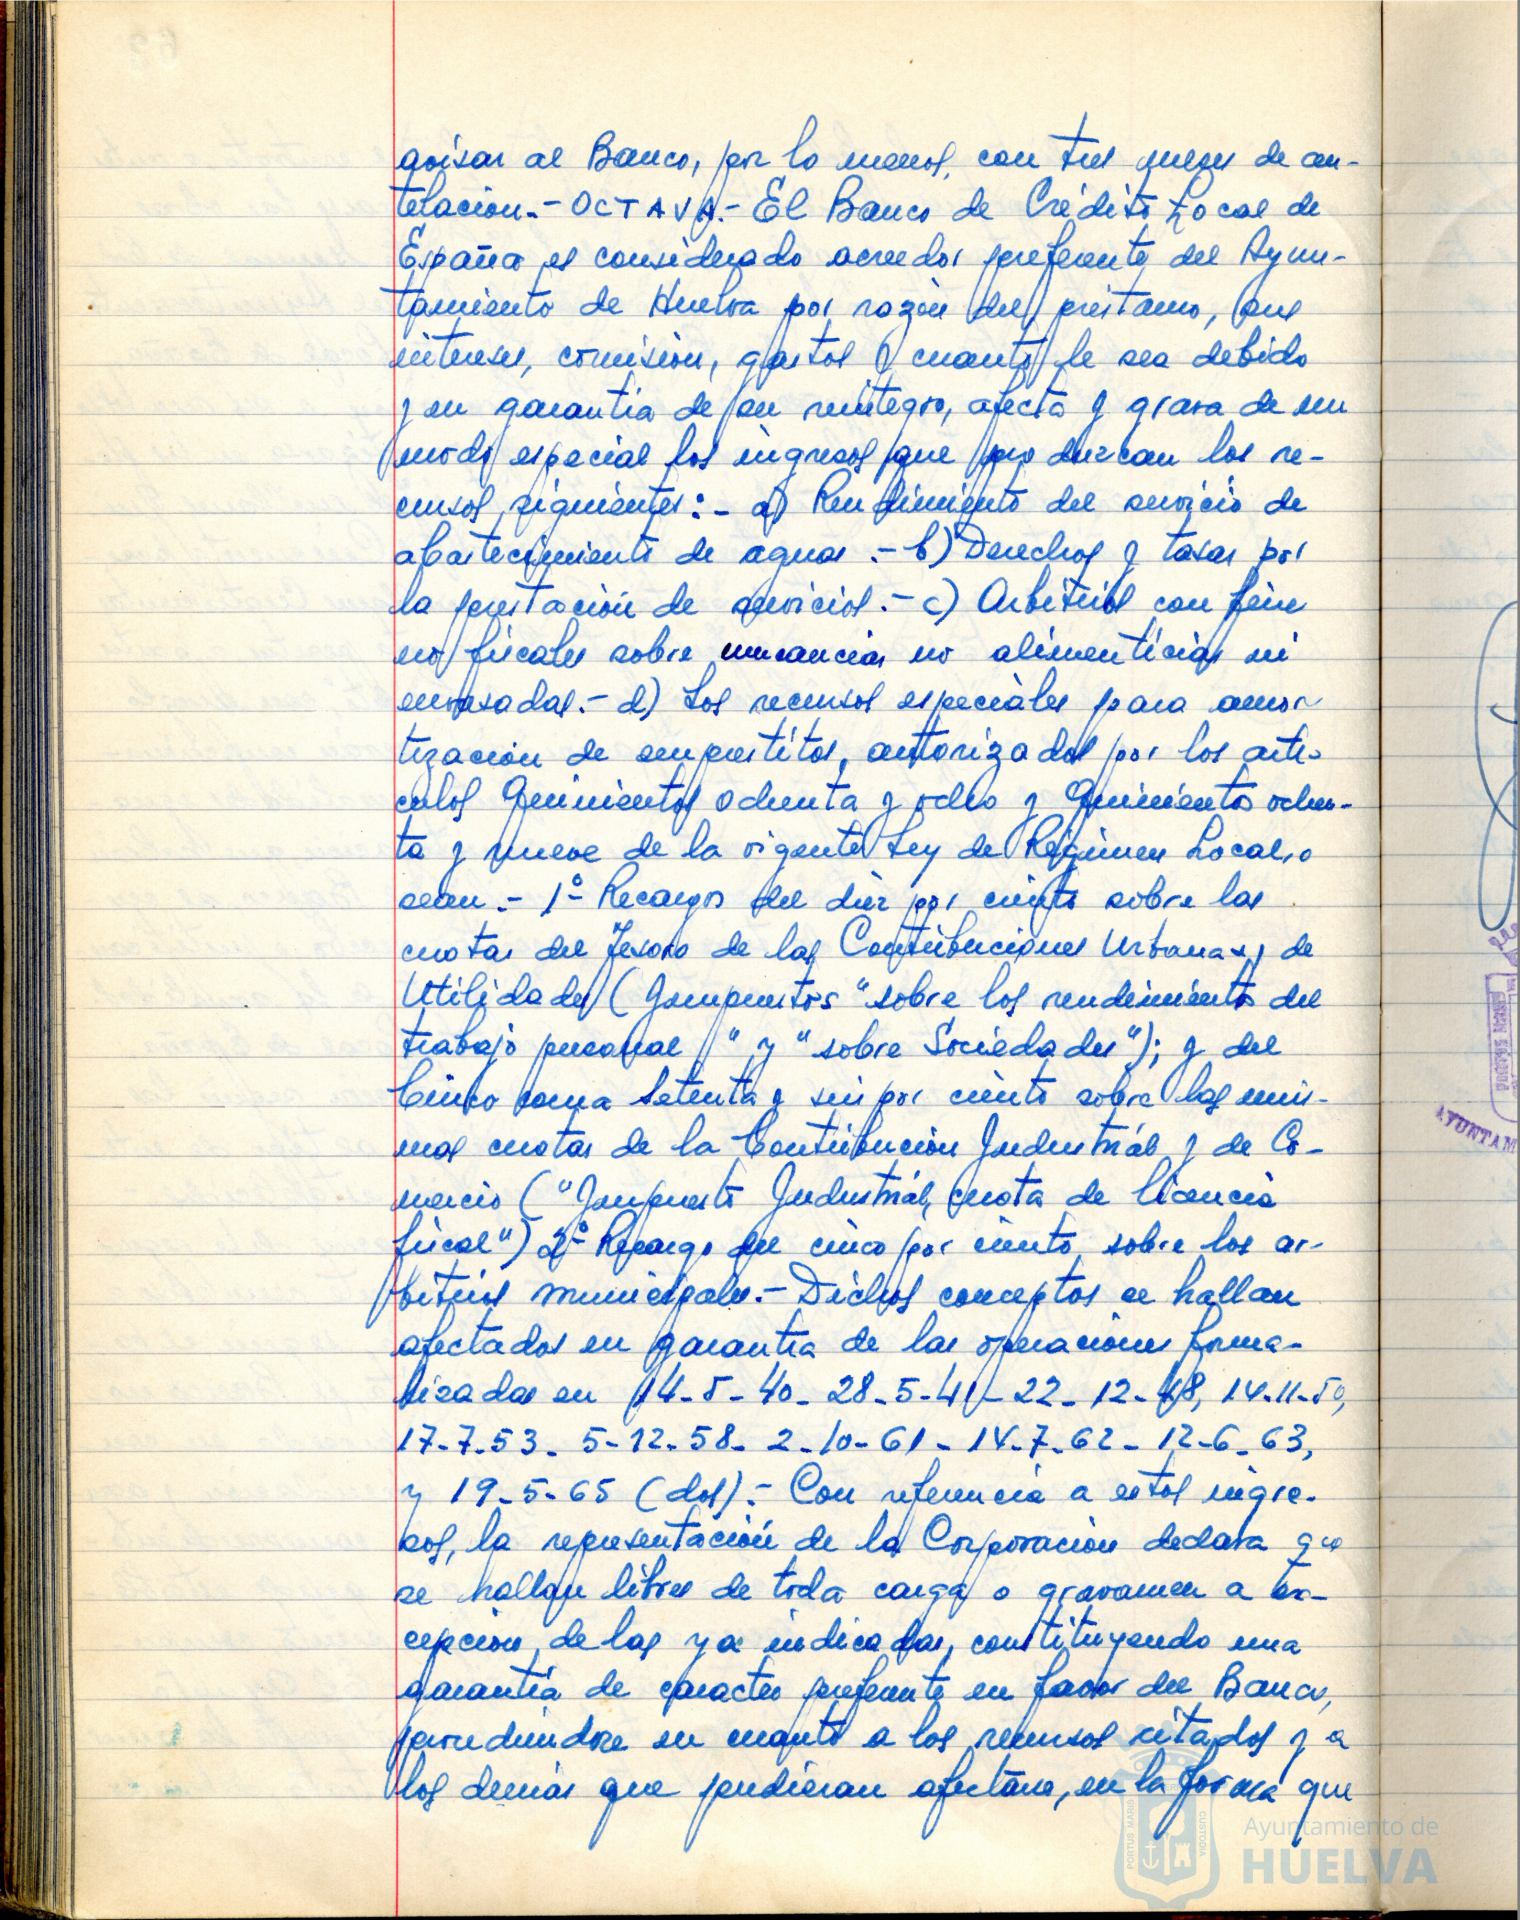 avisar al Banco, por lo menos, con tres meses de an-
telación.- OCTAVA.- El Banco de Crédito Local de
España es considerado acreedor preferente del Ayun-
tamiento de Huelva por razón del préstamo, sus
intereses, comisión, gastos y cuanto le sea debido
y en garantía de su reintegro, afecta y grava de un
modo especial los ingresos que produzcan los re-
cursos siguientes:- a) Rendimiento del servicio de
abastecimiento de aguas.- b) Derechos y tasas por
la prestación de servicios.- c) Arbitrios con fines
no fiscales sobre mercancias no alimenticias ni
envasadas.- d) Los recursos especiales para amor
tización de empréstitos, autorizados por los artí-
culos Quinientos ochenta y ocho y Quinientos ochen-
ta y nueve de la vigente Ley de Régimen Local, o
sean.- 1º- Recargo del diez por ciento sobre las
cuotas del Tesoro de las Contribuciones Urbana y de
Utilidades (Impuestos "sobre los rendimientos del
trabajo personal" y "sobre Sociedades"); y del
Cinco coma Setenta y seis por ciento sobre las mis-
mas cuotas de la Contribución Industrial y de Co-
mercio ("Impuesto Industrial, cuota de licencia
fiscal") 2º- Recargo del cinco por ciento, sobre los ar-
bitrios municipales.- Dichos conceptos se hallan
afectados en garantía de las operaciones forma-
lizadas en 14-5-40- 28-5-41- 22-12-48, 14-11-50,
17-7-53- 5-12-58- 2-10-61- 14-7-62- 12-6-63,
y 19-5-65 (dos).- Con referencia a estos ingre-
sos, la representación de la Corporación declara que
se hallan libres de toda carga o gravamen a ex-
cepción de las ya indicadas, constituyendo una
garantía de caracter preferente en favor del Banco,
procediendose en cuanto a los recursos citados y a
los demás que pudieran afectarse, en la forma que
PORTUS MARIS CUSTODIA
Ayuntamiento de
HUELVA
AYUNTAM